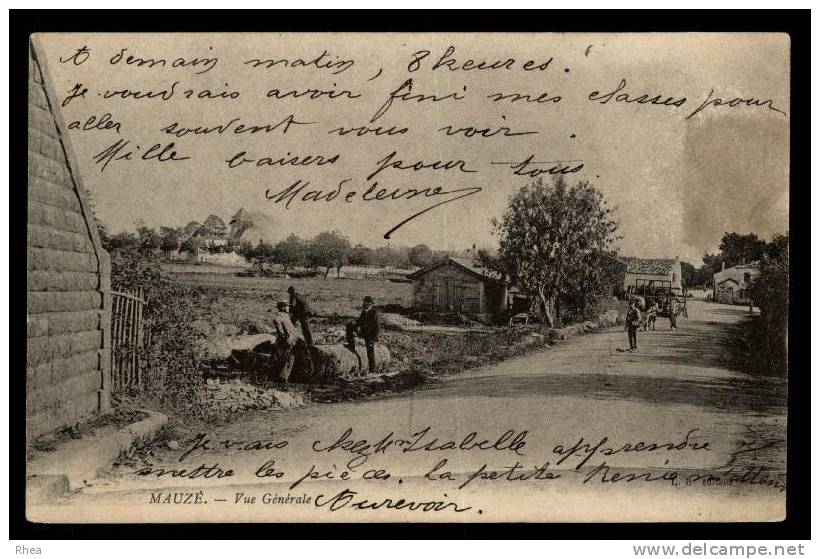 A demain matin, 8 heures.
Je voudrais avoir fini mes classes pour
aller soudent vous voir.
Mille baisers pour tous
Madeleine
Je vais chez Mme Isabelle apprendre
mettre les pièces. La petite Renée
MAUZÉ. - Vue Générale
Aurevoir.
Rhea
http://www.delcampe.net